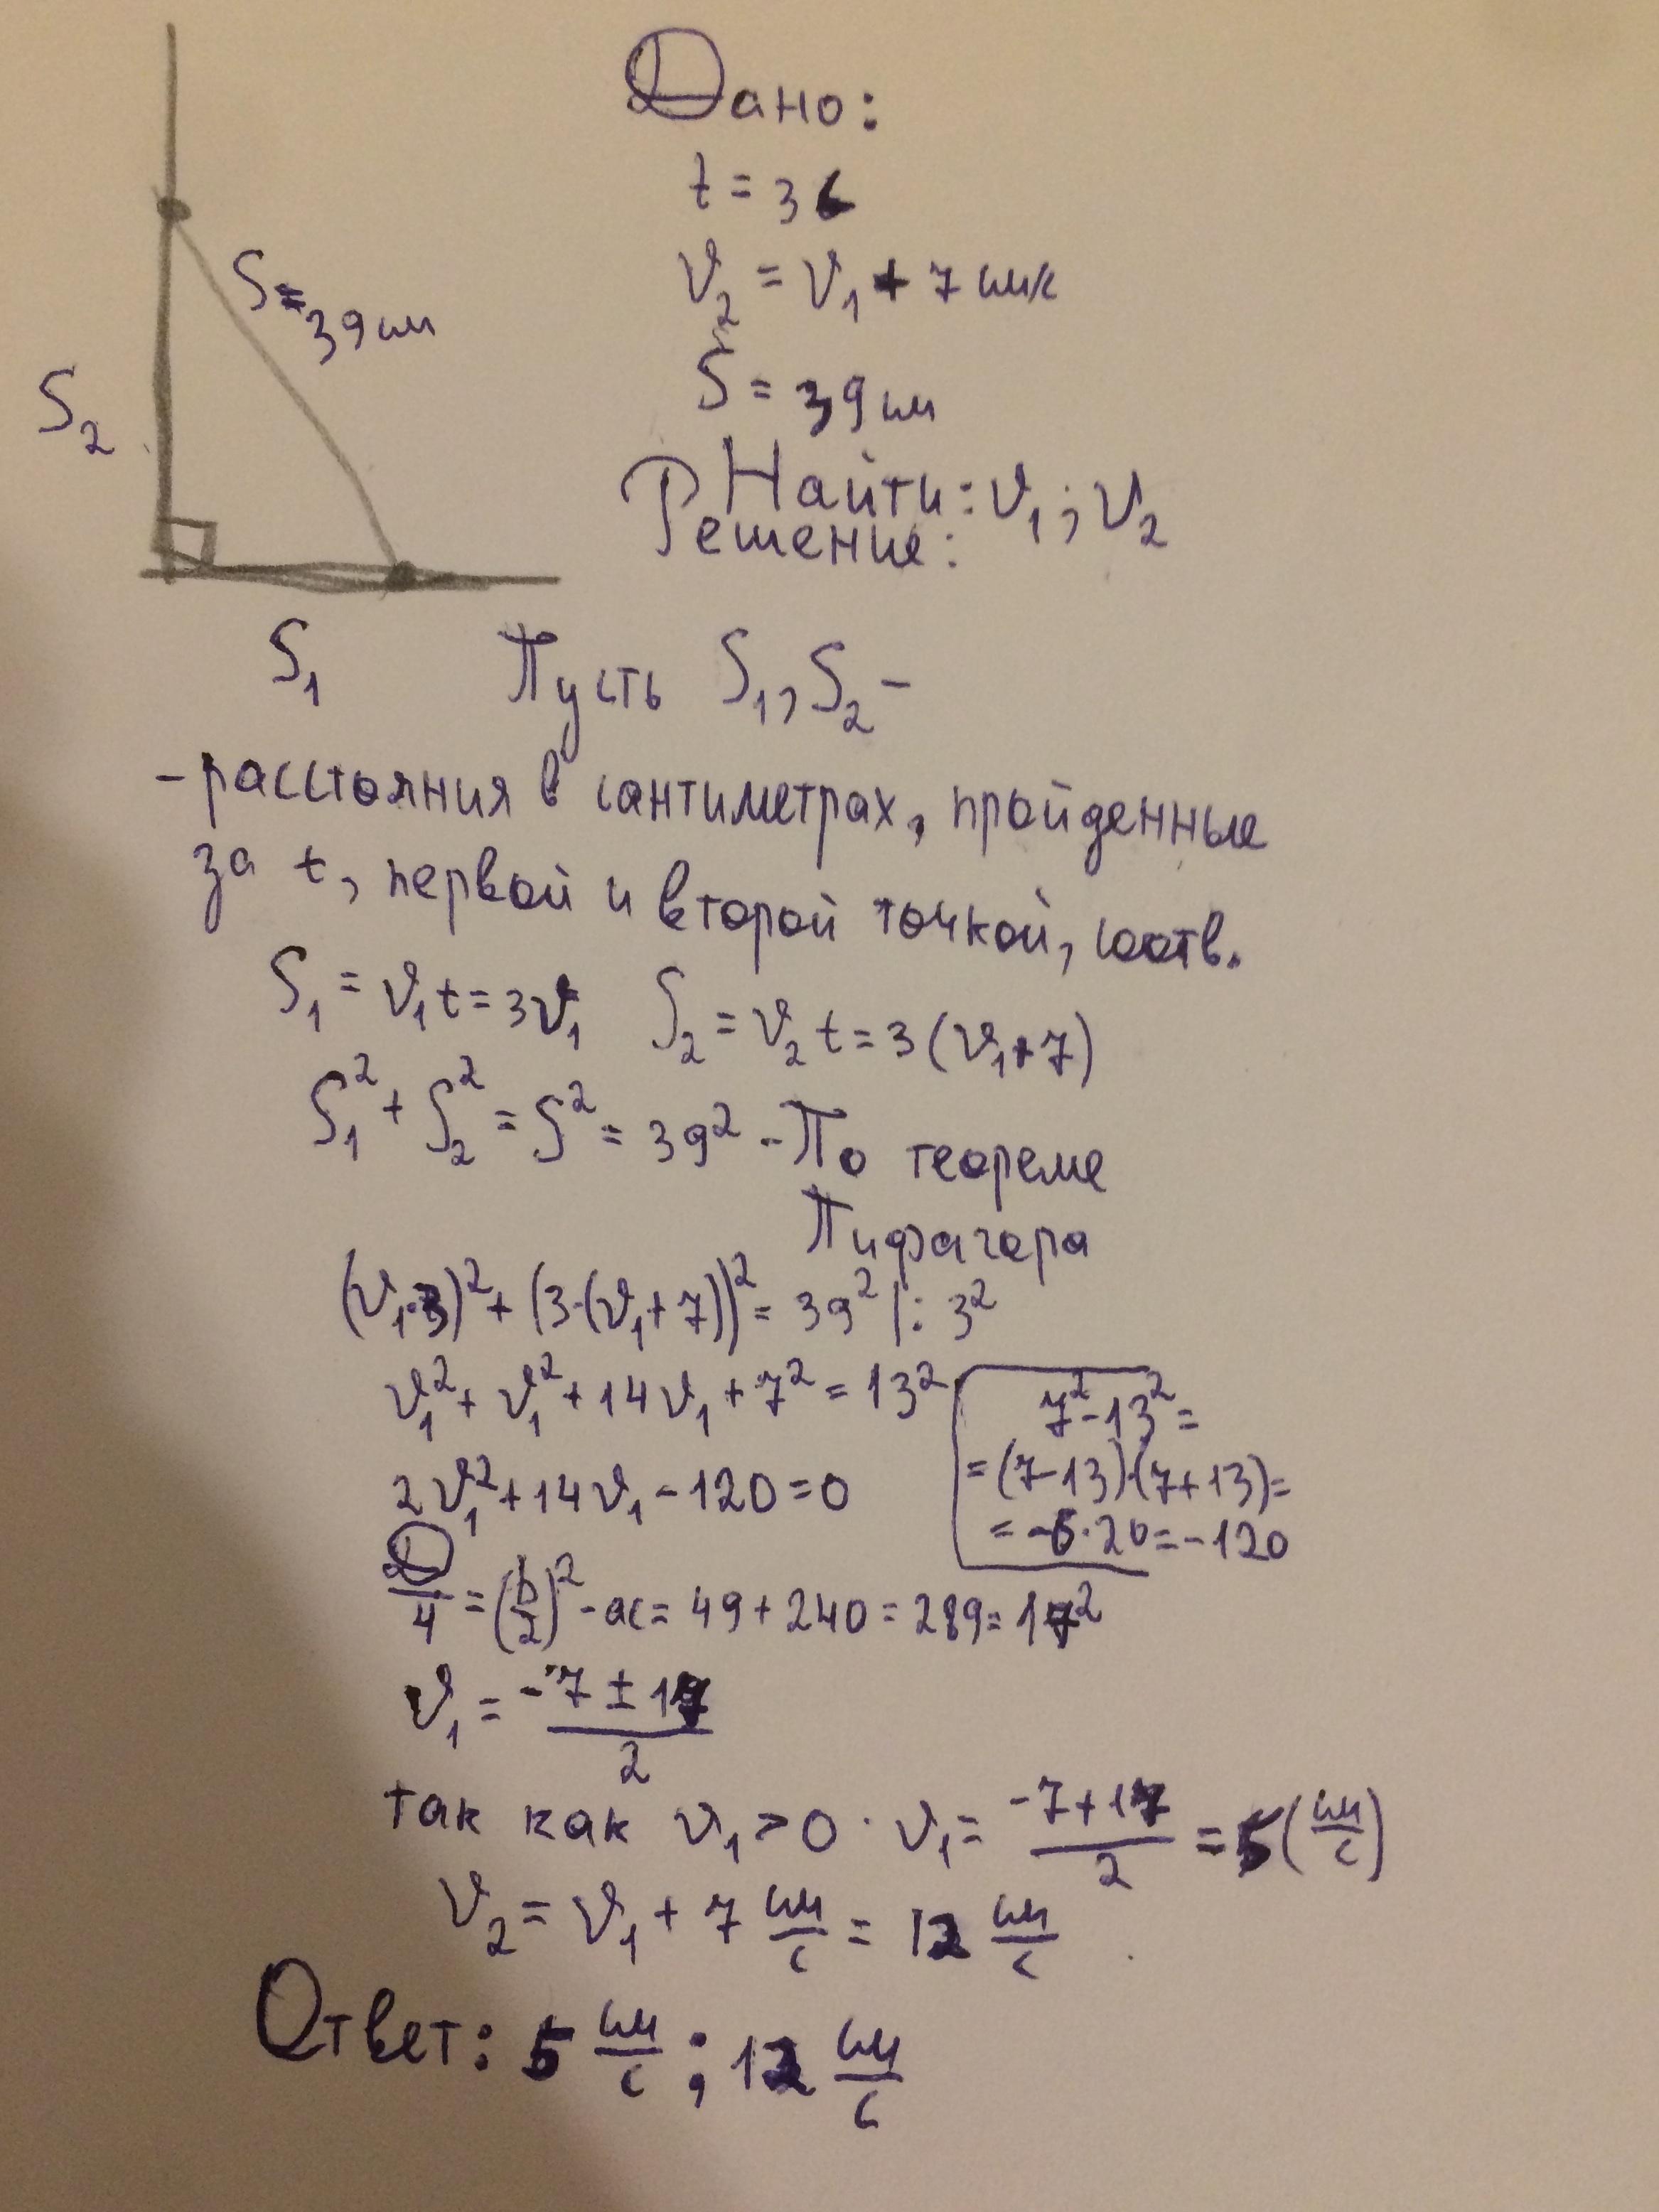 Дано:
t = 3 с
S = 39 см
v₂ = v₁ + 7 см/с
S₂
S = 39 см
Найти: v₁; v₂
Решение:
S₁
Пусть S₁, S₂ –
– расстояния в сантиметрах, пройденные
за t, первой и второй точкой, соотв.
S₁ = v₁t = 3v₁ S₂ = v₂t = 3(v₁+7)
S₁² + S₂² = S² = 39² – По теореме
Пифагора
(v₁·3)² + (3·(v₁+7))² = 39² |: 3²
v₁² + v₁² + 14v₁ + 7² = 13²
7² - 13² =
= (7-13)·(7+13) =
= -6·20 = -120
2v₁² + 14v₁ - 120 = 0
D/4 = (b/2)² - ac = 49 + 240 = 289 = 17²
v₁ = (-7 ± 17)/2
так как v₁ > 0 · v₁ = (-7+17)/2 = 5 (см/с)
v₂ = v₁ + 7 см/с = 12 см/с
Ответ: 5 см/с ; 12 см/с